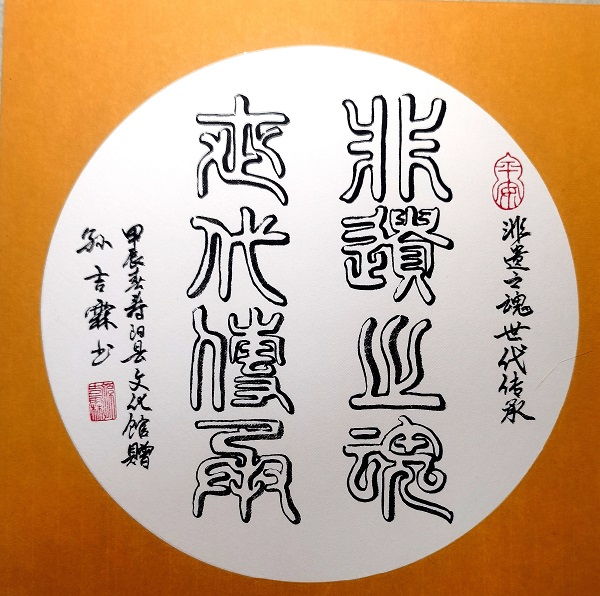 平安
非遗之魂世代传承
非遺之魂
世代傳承
甲辰春寿阳县文化馆赠
孙吉霖书